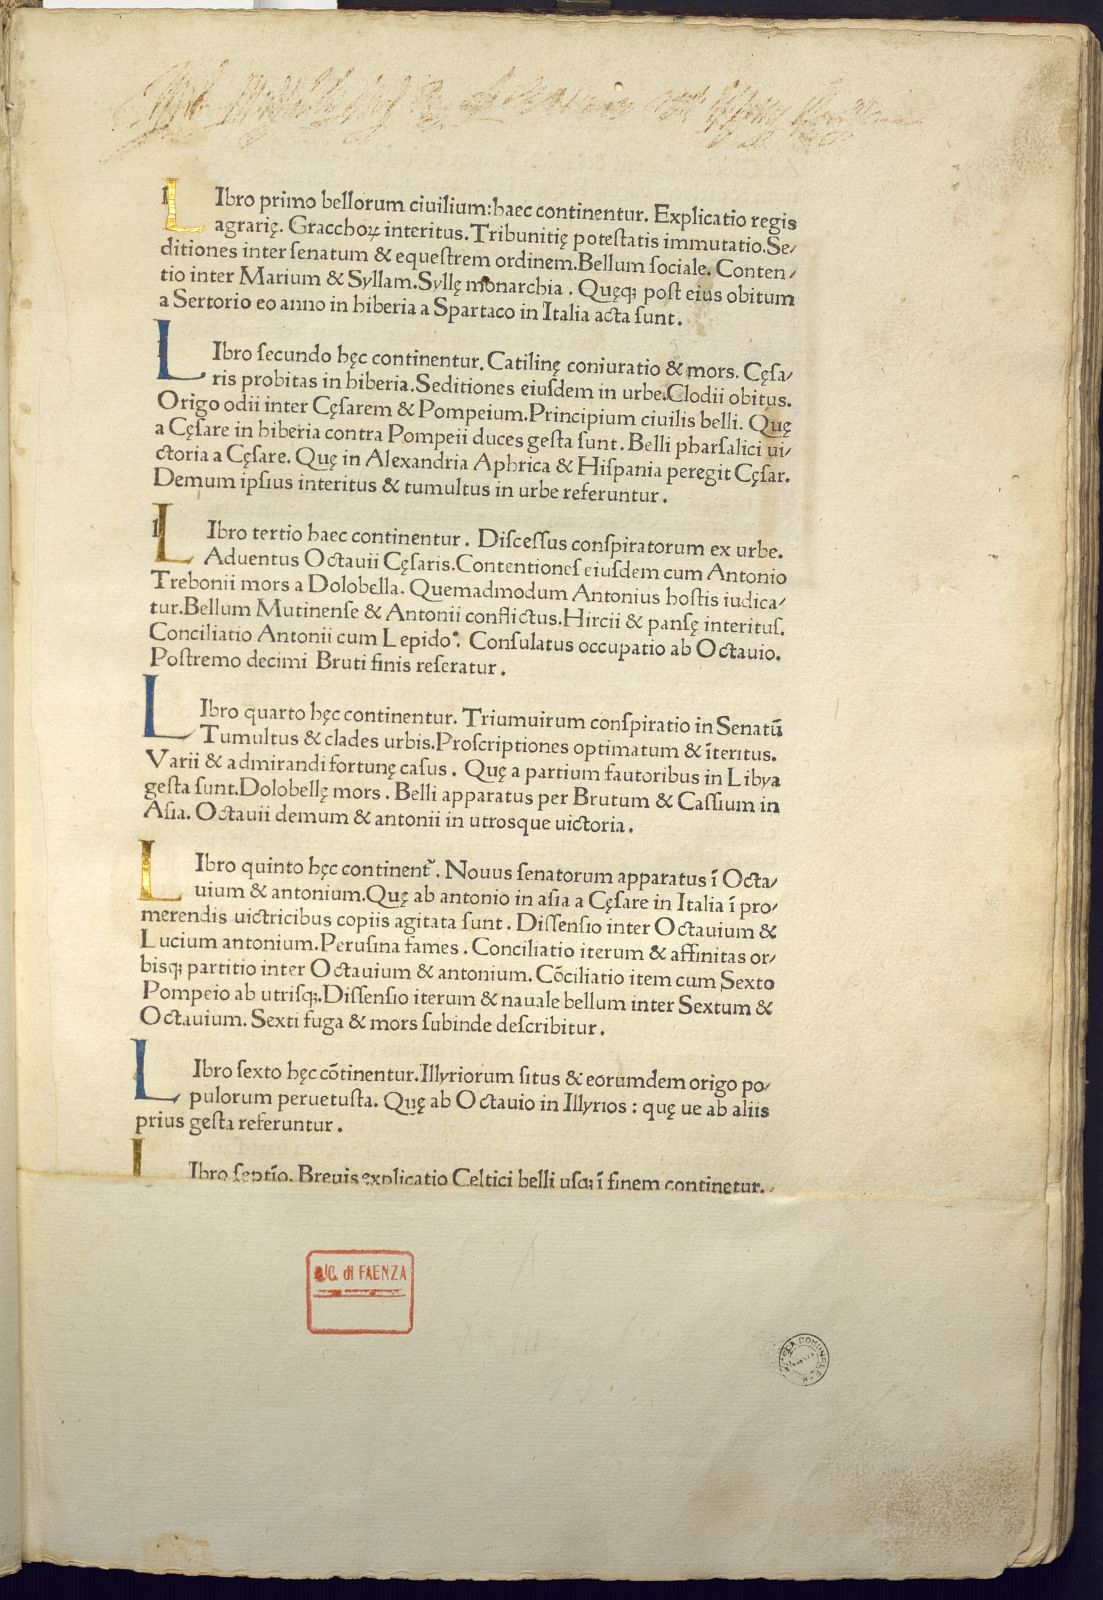 LIbro primo bellorum ciuilium:haec continentur. Explicatio regis
agrarię. Gracchoꝝ interitus.Tribunitię poteſtatis immutatio.Se/
ditiones inter ſenatum & equeſtrem ordinem.Bellum ſociale. Conten/
tio inter Marium & Syllam.Syllę monarchia . Quęqꝫ poſt eius obitum
a Sertorio eo anno in hiberia a Spartaco in Italia acta ſunt .
LIbro ſecundo hęc continentur. Catilinę coniuratio & mors. Cęſa/
ris probitas in hiberia.Seditiones eiuſdem in urbe.Clodii obitus.
Origo odii inter Cęſarem & Pompeium.Principium ciuilis belli. Quę
a Cęſare in hiberia contra Pompeii duces geſta ſunt . Belli pharſalici ui/
ctoria a Cęſare. Quę in Alexandria Aphrica & Hiſpania peregit Cęſar.
Demum ipſius interitus & tumultus in urbe referuntur .
LIbro tertio haec continentur . Diſceſſus conſpiratorum ex urbe.
Aduentus Octauii Cęſaris.Contentioneſ eiuſdem cum Antonio
Trebonii mors a Dolobella. Quemadmodum Antonius hoſtis iudica/
tur.Bellum Mutinenſe & Antonii conflictus.Hircii & panſę interituſ.
Conciliatio Antonii cum Lepido. Conſulatus occupatio ab Octauio.
Poſtremo decimi Bruti finis reſeratur .
LIbro quarto hęc continentur. Triumuirum conſpiratio in Senatū
Tumultus & clades urbis.Proſcriptiones optimatum & īteritus.
Varii & admirandi fortunę caſus . Quę a partium fautoribus in Libya
geſta ſunt.Dolobellę mors . Belli apparatus per Brutum & Caſſium in
Aſia. Octauii demum & antonii in utrosque uictoria .
LIbro quinto hęc continent᷑. Nouus ſenatorum apparatus ī Octa/
uium & antonium.Quę ab antonio in aſia a Cęſare in Italia ī pro/
merendis uictricibus copiis agitata ſunt . Diſſenſio inter Octauium &
Lucium antonium.Peruſina fames . Conciliatio iterum & affinitas or/
biſqꝫ partitio inter Octauium & antonium. Cōciliatio item cum Sexto
Pompeio ab utriſqꝫ.Diſſenſio iterum & nauale bellum inter Sextum &
Octauium. Sexti fuga & mors ſubinde deſcribitur .
LIbro ſexto hęc cōtinentur.Illyriorum ſitus & eorumdem origo po/
pulorum peruetuſta. Quę ab Octauio in Illyrios : quę ue ab aliis
prius geſta referuntur .
LIbro ſeptīo. Breuis explicatio Celtici belli uſqꝫ ī finem continetur.
di FAENZA